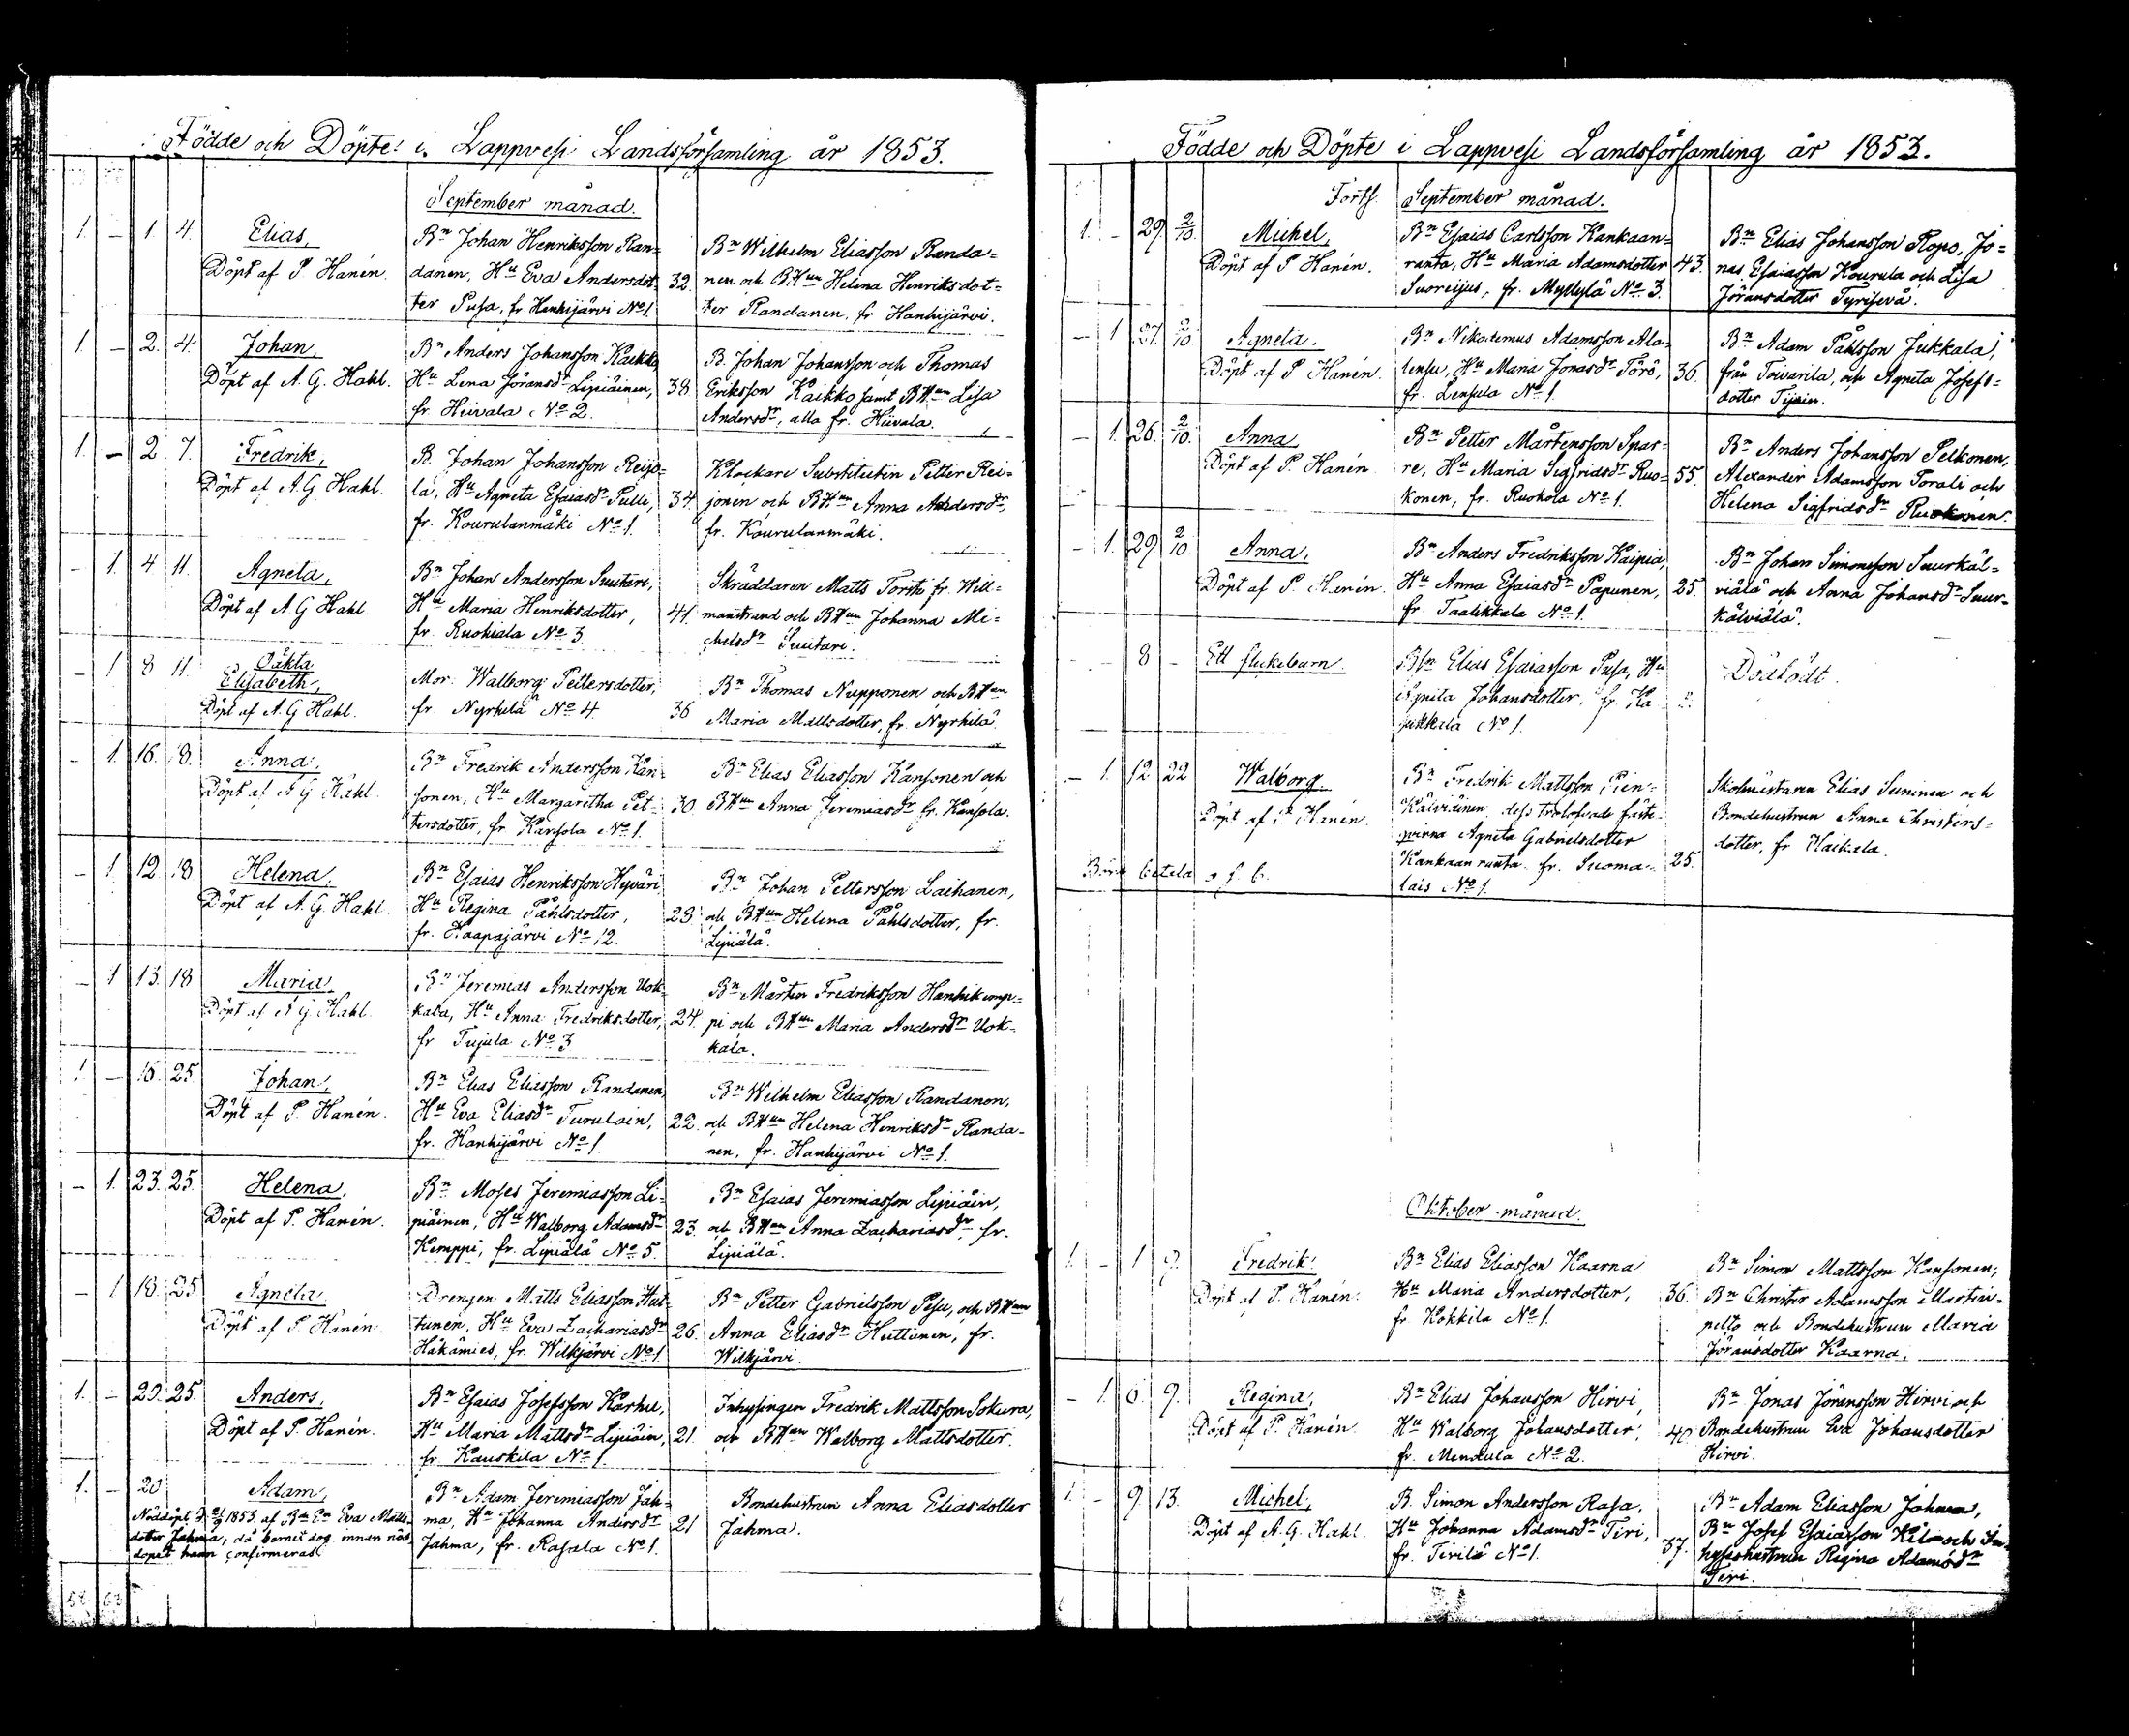 Födde och Döpte i Lappvesi Landsförsamling år 1853.
September månad.
1. – 1. 4. Elias,
Döpt af P. Hanén.
Bn Johan Henriksson Ran=
danen, Hu Eva Andersdot=
ter Pusa, fr. Hanhijärvi No 1.
32.
Bn Wilhelm Eliasson Randa=
nen och BHun Helena Henriksdot=
ter Randanen, fr. Hanhijärvi.
1. – 2. 4. Johan,
Döpt af A. G. Hahl.
Bn Anders Johansson Kaikko
Hu Lena Jöransdr Lipiäinen,
fr. Hiivala No 2.
38.
B. Johan Johansson och Thomas
Eriksson Kaikko samt BHun Lisa
Andersdr, alla fr. Hiivala.
1. – 2. 7. Fredrik,
Döpt af A. G. Hahl.
B. Johan Johansson Reijo=
la, Hu Agneta Esaiasdr Pulli,
fr. Kourulanmäki No 1.
34.
Klockare Substituten Petter Rei=
jonen och BHun Anna Andersdr,
fr. Kourulanmäki.
– 1. 4. 11. Agneta,
Döpt af A. G. Hahl.
Bn Johan Andersson Suutari,
Hu Maria Henriksdotter,
fr. Ruohiala No 3.
41.
Skräddaren Matts Torsti fr. Will=
manstrand och BHun Johanna Mi=
chelsdr Suutari.
– 1 8 11. Oäkta
Elisabeth,
Döpt af A. G. Hahl.
Mor. Walborg Pettersdotter,
fr. Nyrhilä No 4.
36
Bn Thomas Nupponen och BHun
Maria Mattsdotter, fr. Nyrhilä.
– 1. 16. 18. Anna,
Döpt af A. G. Hahl.
Bn Fredrik Andersson Kan=
sonen, Hu Margaretha Pet=
tersdotter, fr. Kansola No 1.
30.
Bn Elias Eliasson Kansonen och
BHun Anna Jeremiasdr fr. Kansola.
– 1 12 18 Helena,
Döpt af A. G. Hahl.
Bn Esaias Henriksson Hyväri
Hu Regina Påhlsdotter,
fr. Haapajärvi No 12.
28.
Bn Johan Pettersson Laihanen,
och BHun Helena Påhlsdotter, fr.
Lipiälä.
– 1 13. 18 Maria,
Döpt af A. G. Hahl.
Bn Jeremias Andersson Uok=
kala, Hu Anna Fredriksdotter,
fr Tujula No 3
24.
Bn Mårten Fredriksson Hanhikomp=
pi och BHun Maria Andersdr Uok=
kala.
1 – 15. 25. Johan,
Döpt af P. Hanén.
Bn Elias Eliasson Randanen,
Hu Eva Eliasdr Turulain,
fr. Hanhijärvi No 1.
22.
Bn Wilhelm Eliasson Randanen,
och BHun Helena Henriksdr Randa=
nen, fr. Hanhijärvi No 1.
– 1. 23. 25. Helena,
Döpt af P. Hanén.
Bn Moses Jeremiasson Li=
piäinen, Hu Walborg Adamsdr
Kemppi, fr. Lipiälä No 5.
23.
Bn Esaias Jeremiasson Lipiäin,
och BHun Anna Zachariasdr fr.
Lipiälä.
– 1 18. 25 Agneta
Döpt af P. Hanén.
Drengen Matts Eliasson Hut=
tunen, Hu Eva Zachariasdr
Häkämies, fr. Wilkjärvi No 1.
26.
Bn Petter Gabrielsson Pesu, och BHun
Anna Eliasdr Huttunen, fr.
Wilkjärvi.
1. – 20. 25. Anders,
Döpt af P. Hanén.
Bn Esaias Josefsson Karhu,
Hu Maria Mattsdr Lipiäin,
fr Kauskila No 1.
21.
Inhysingen Fredrik Mattsson Sokura,
och BHun Walborg Mattsdotter.
1. – 20 Adam,
Nöddöpt 1853. af Eva Matts=
dotter Jahma, då barnet dog innan nöd
dopet hann confirmeras
Bn Adam Jeremiasson Jah=
ma, Hu Johanna Andersdr
Jahma, fr. Rasala No 1.
21
Bondehustrun Anna Eliasdotter
Jahma.
Födde och Döpte i Lappvesi Landsförsamling år 1853.
Forts. September månad.
1. – 29. 2/10. Michel,
Döpt af P. Hanén.
Bn Esaias Carlsson Kankaan=
ranta, Hu Maria Adamsdotter
Suoreijus, fr. Myllylä No 3.
43.
Bn Elias Johansson Ropo, Jo=
nas Esaiasson Kourula och Lisa
Jöransdotter Tyrisevä.
– 1 27. 2/10. Agneta.
Döpt af P. Hanén.
Bn Nikodemus Adamsson Ala=
lensu, Hu Maria Jonasdr Törö,
fr. Lensula No 1.
36.
Bn Adam Påhlsson Jukkala,
från Toivarila, och Agneta Josefs=
dotter Tijain.
– 1. 26. 2/10. Anna
Döpt af P. Hanén
Bn Petter Mårtensson Spar=
re, Hu Maria Sigfridsdr Ruo=
konen, fr. Ruokola No 1.
55.
Bn Anders Johansson Pelkonen,
Alexander Adamsson Torali och
Helena Sigfridsdr Ruokonen.
– 1. 29. 2/10. Anna,
Döpt af P. Hanén.
Bn Anders Fredriksson Kaipia,
Hu Anna Esaiasdr Papunen,
fr. Taalikkala No 1.
25.
Bn Johan Simonsson Suurkäl=
viälä och Anna Johansdr Suur=
kälviälä.
8 – Ett flickebarn.
Bn Elias Esaiasson Pusa, Hu
Agneta Johansdotter, fr. Ka
jukkala No 1.
Dödfödt.
– 1. 12 22 Walborg.
Döpt af P. Hanén.
Bn Fredrik Mattsson Pien=
kälviäinen, dess trolofvade fäste=
qvinna Agneta Gabrielsdotter
Kankaanranta fr. Suoma=
lais No 1.
25.
Skolmästaren Elias Suninen och
Bondehustrun Anna Christers=
dotter, fr Haikala.
Oktober månad.
1. – 1 9. Fredrik.
Döpt af P. Hanén.
Bn Elias Eliasson Kaarna
Hu Maria Andersdotter,
fr. Kokkila No 1.
36.
Bn Simon Mattsson Kansonen,
Bn Christer Adamsson Martin=
pelto och Bondehustrun Maria
Jöransdotter Kaarna.
– 1. 6. 9. Regina,
Döpt af P. Hanén
Bn Elias Johansson Hirvi,
Hu Walborg Johansdotter,
fr. Menxula No 2.
40.
Bn Jonas Jöransson Hirvi och
Bondehustrun Eva Johansdotter
Hirvi.
1. – 9. 13. Michel,
Döpt af A. G. Hahl.
B. Simon Andersson Rasa,
Hu Johanna Adamsdr Tiri,
fr. Tirilä No 1.
37.
Bn Adam Eliasson Jahma,
Bn Josef Esaiasson och In=
hyseshustrun Regina Adamsdr
Tiri.